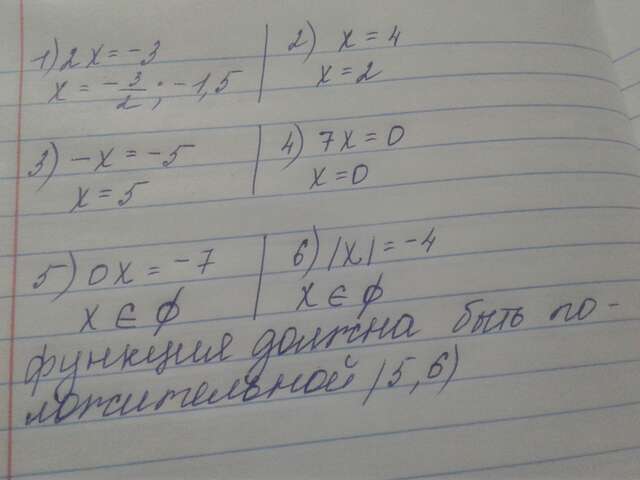 1) 2x = -3
x = -3/2; -1,5
2) x = 4
x = 2
3) -x = -5
x = 5
4) 7x = 0
x = 0
5) 0x = -7
x ∈ ϕ
6) |x| = -4
x ∈ ϕ
функция должна быть по-
ложительной (5,6)